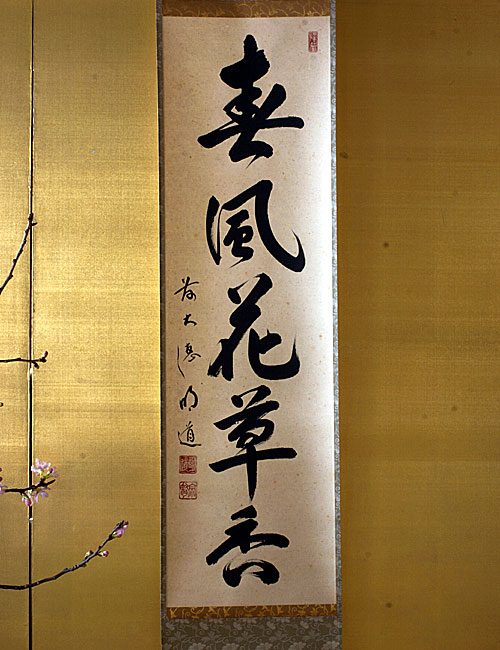 春風花草香
前大德明道